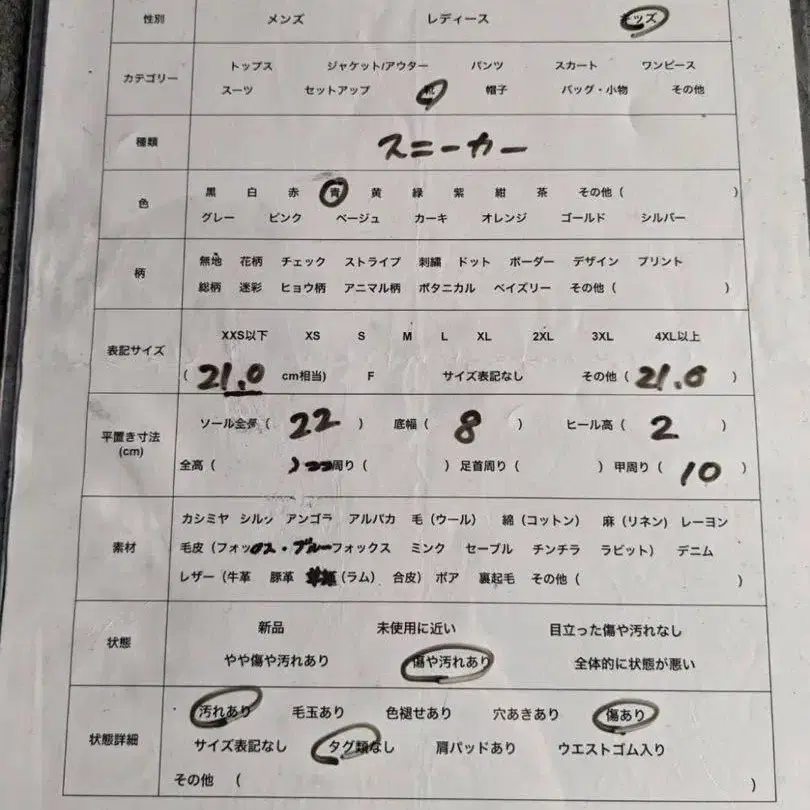 性別 メンズ レディース キッズ
カテゴリー
トップス ジャケット/アウター パンツ スカート ワンピース
スーツ セットアップ 靴 帽子 バッグ・小物 その他
種類 スニーカー
色
黒 白 赤 青 黄 緑 紫 紺 茶 その他 ( )
グレー ピンク ベージュ カーキ オレンジ ゴールド シルバー
柄
無地 花柄 チェック ストライプ 刺繍 ドット ボーダー デザイン プリント
総柄 迷彩 ヒョウ柄 アニマル柄 ボタニカル ペイズリー その他 ( )
表記サイズ
XXS以下 XS S M L XL 2XL 3XL 4XL以上
( 21.0 cm相当) F サイズ表記なし その他 ( 21.0 )
平置き寸法
(cm)
ソール全長 ( 22 ) 底幅 ( 8 ) ヒール高 ( 2 )
全高 ( ) 周り ( ) 足首周り ( ) 甲周り ( 10 )
素材
カシミヤ シルク アンゴラ アルパカ 毛 (ウール) 綿 (コットン) 麻 (リネン) レーヨン
毛皮 (フォックス・ブルーフォックス ミンク セーブル チンチラ ラビット) デニム
レザー (牛革 豚革 (ラム) 合皮) ボア 裏起毛 その他 ( )
状態
新品 未使用に近い 目立った傷や汚れなし
やや傷や汚れあり 傷や汚れあり 全体的に状態が悪い
状態詳細
汚れあり 毛玉あり 色褪せあり 穴あきあり 傷あり
サイズ表記なし タグ類なし 肩パッドあり ウエストゴム入り
その他 ( )